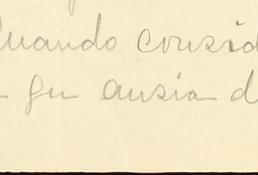 Quando consid
gu ansia d